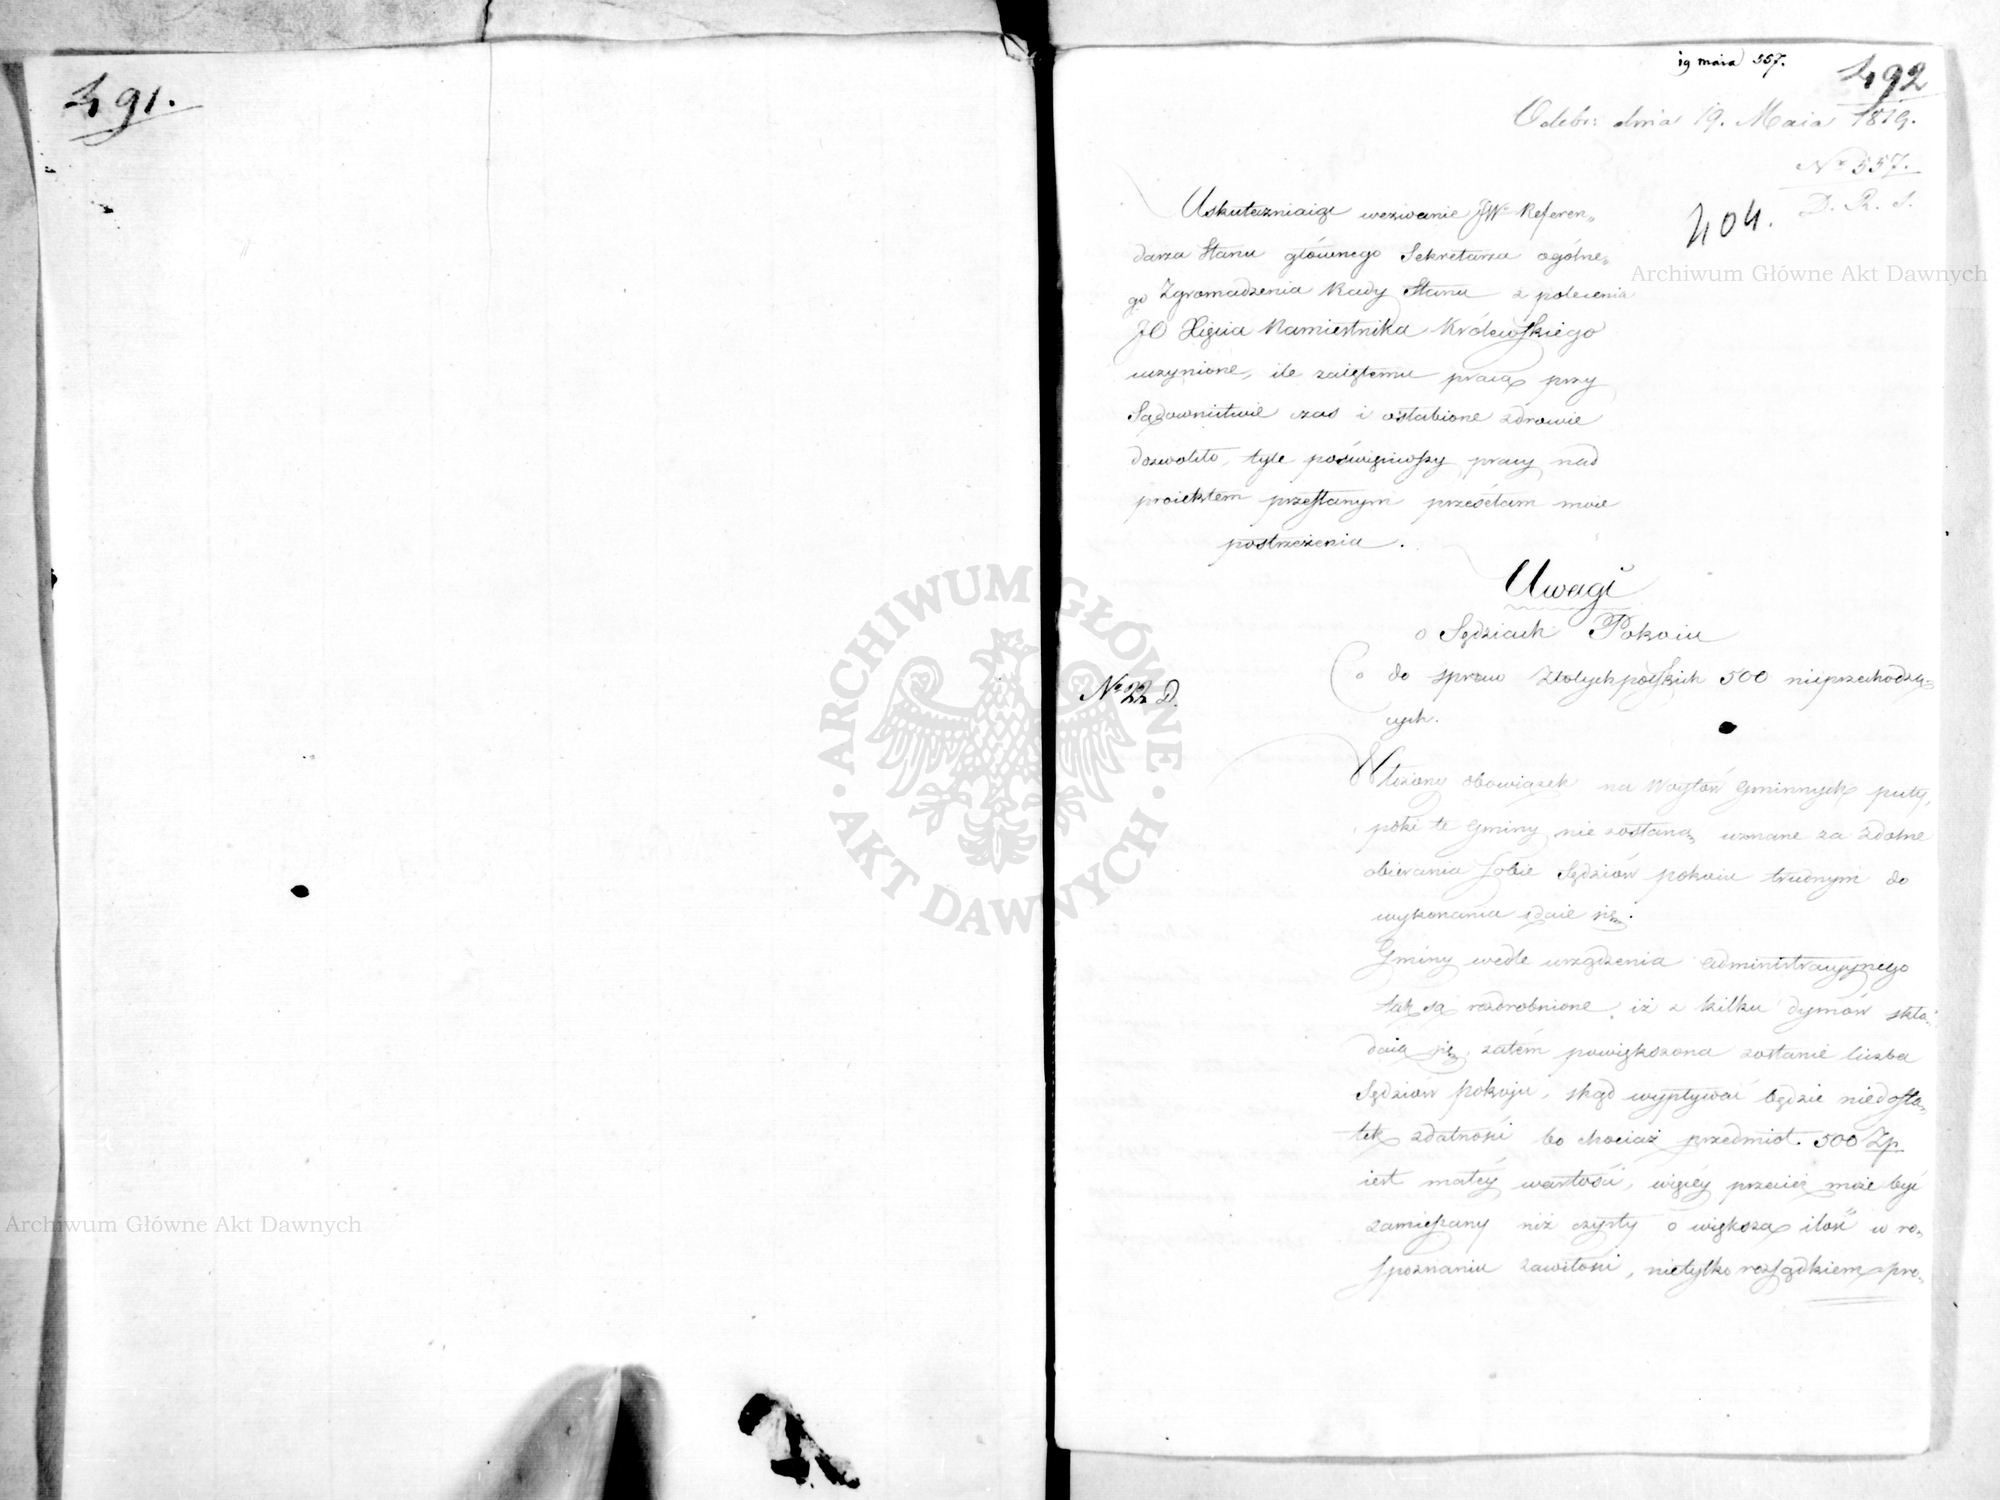 491.
19 maia 557.
492
Odebr: dnia 19. Maia 1819.
No 557.
D. R. S.
404.
Uskuteczniaiąc wezwanie JWo Referen„
darza Stanu głównego Sekretarza ogólne„
go Zgromadzenia Rady Stanu z polecenia
JO Xięcia Namiestnika Królewskiego
uczynione, ile zaiętemu pracą przy
Sądownictwie czas i osłabione zdrowie
dozwoliło, tyle poświęciwszy pracy nad
proiektem przesłanym przesełam moie
postrzeżenia.
Uwagi
o Sędziach Pokoiu
Co do spraw Złotychpolskich 500 nieprzechodzą„
cych.
No 22 D.
Włożony obowiązek na Woytów Gminnych puty,
poki te Gminy nie zostaną uznane za zdolne
obierania sobie Sędziów pokoiu trudnym do
wykonania zdaie się.
Gminy wedle urządzenia administracyynego
tak są rozdrobnione, iż z kilku dymów skła„
daią się, zatém powiększona zostanie liczba
Sędziów pokoju, skąd wypływać będzie niedosta„
tek zdatności bo chociaż przedmiot 500 Zp
iest małéy wartości, więcéy przecież może być
zamieszany niż czysty o większą ilość w ro„
spoznaniu zawiłości, nietylko rozsądkiem pro„
Archiwum Główne Akt Dawnych
Archiwum Główne Akt Dawnych
ARCHIWUM GŁÓWNE AKT DAWNYCH